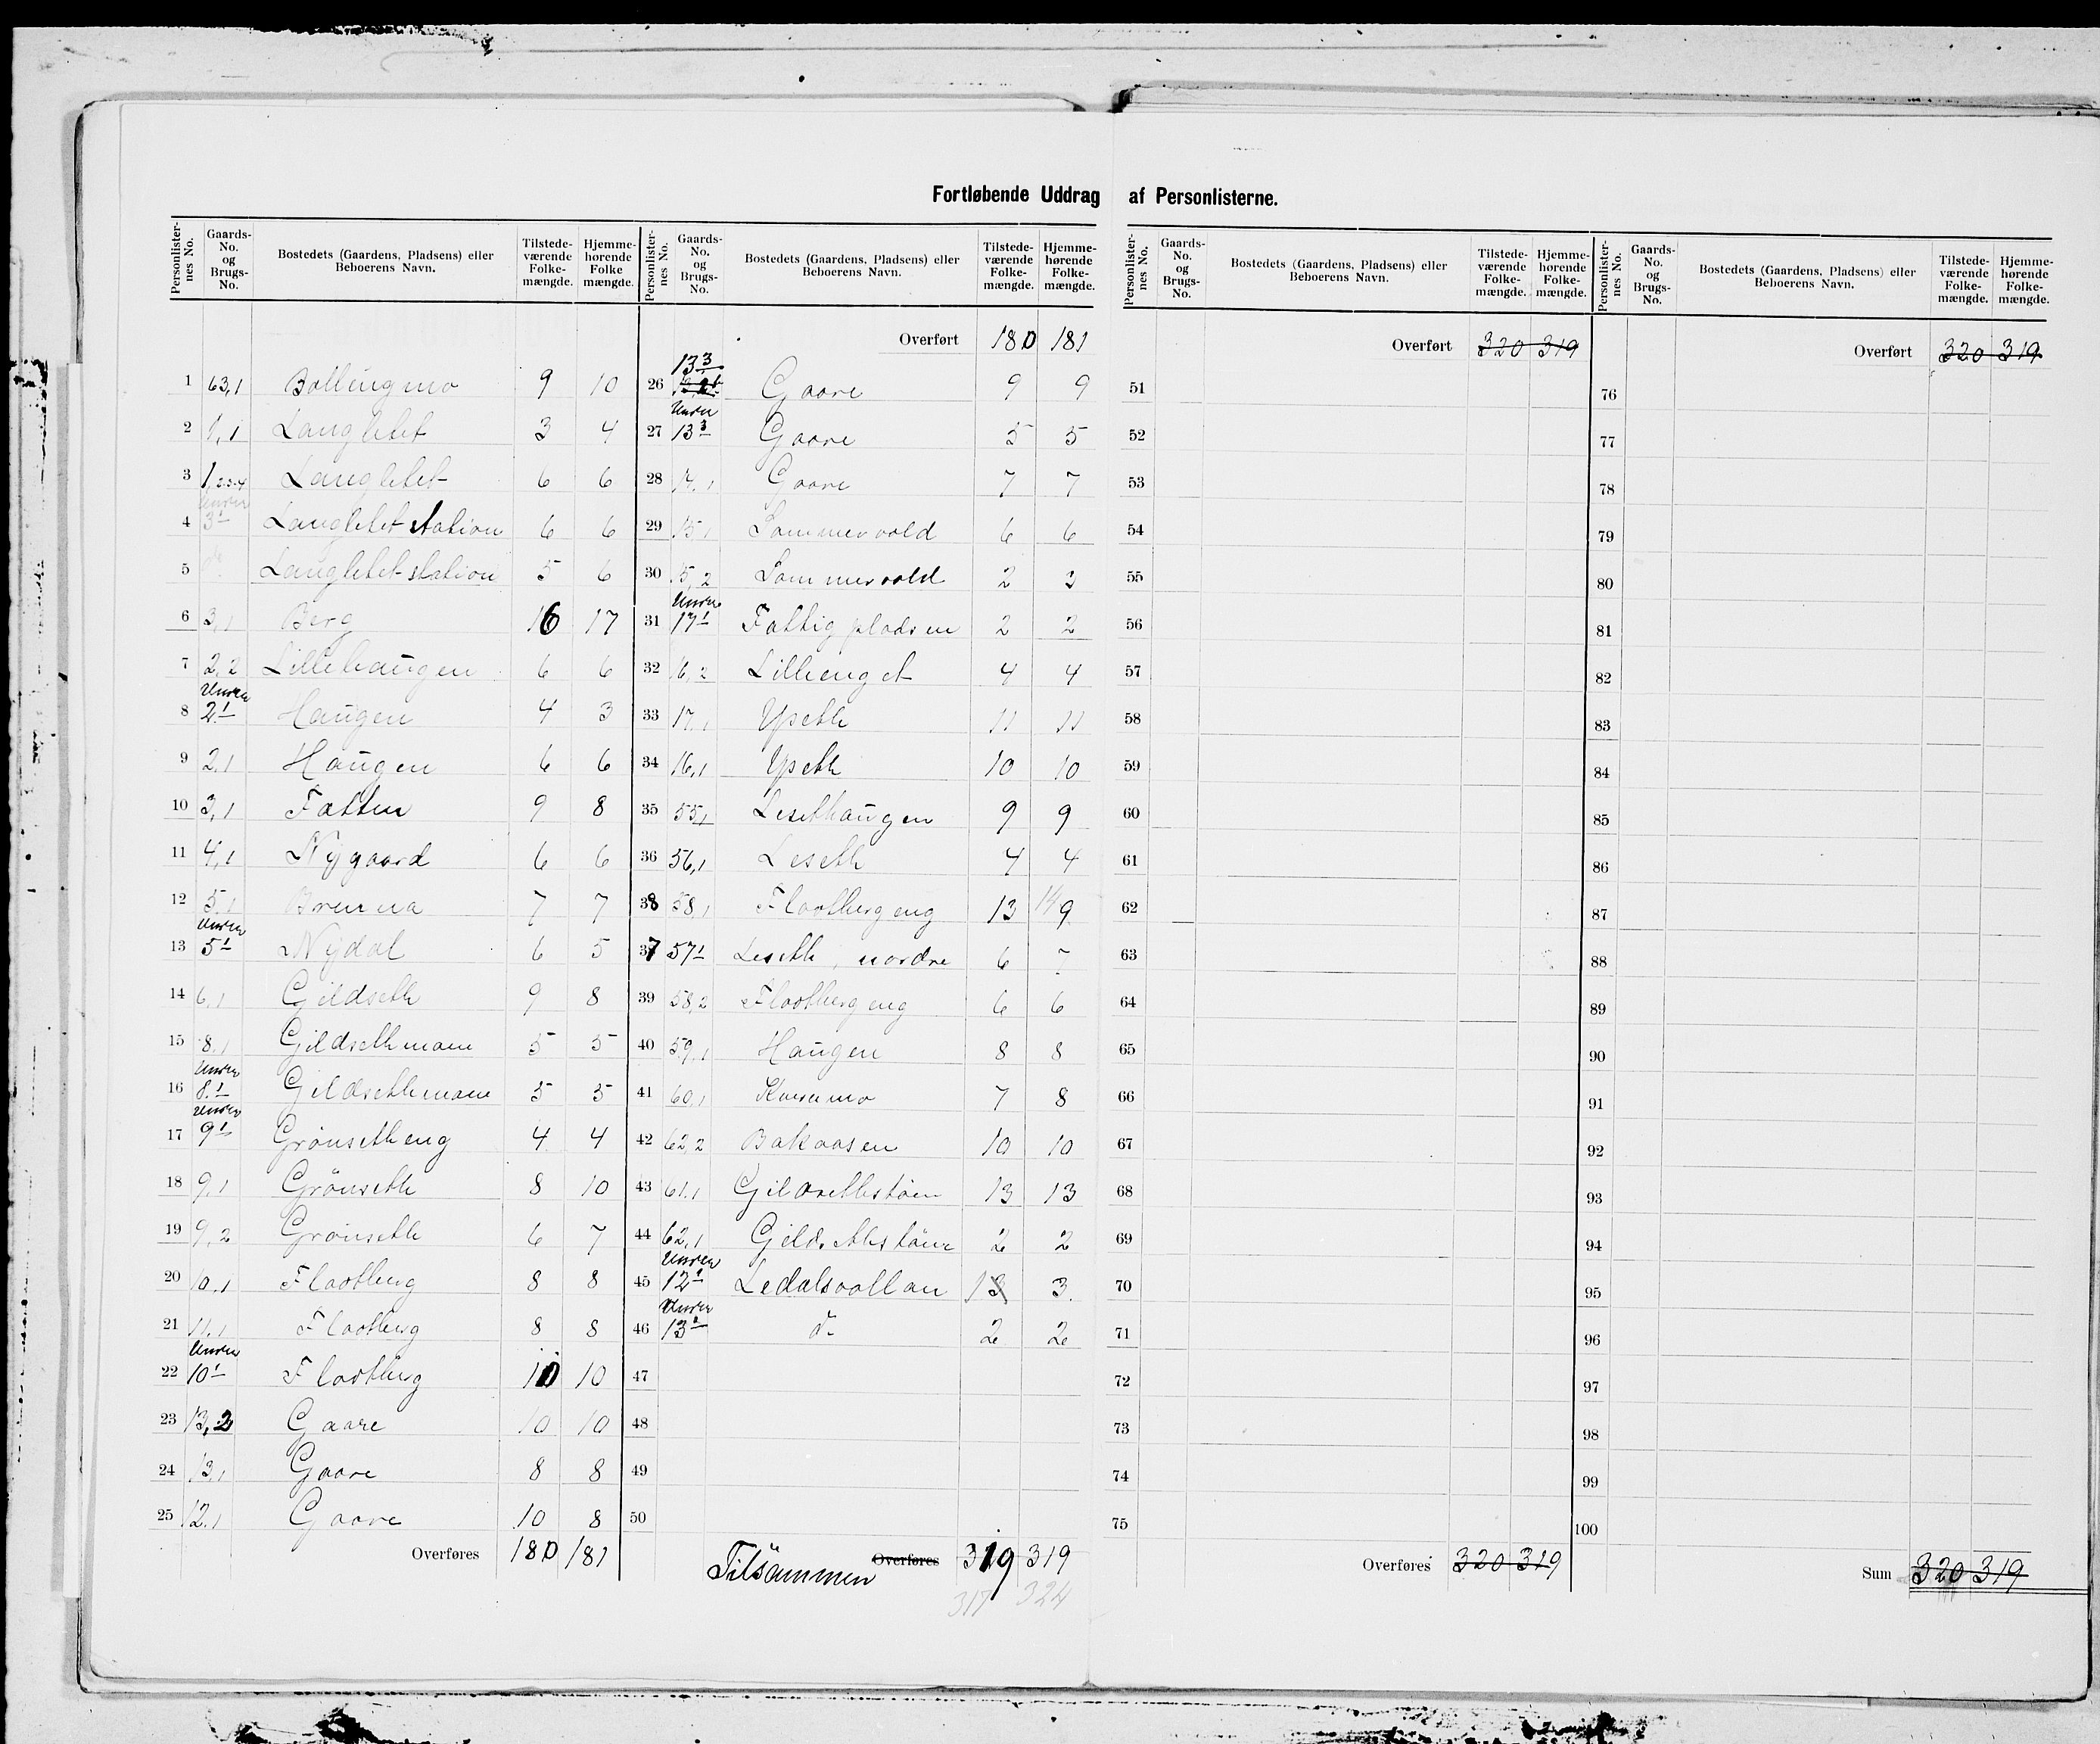 Fortløbende Uddrag af Personlisterne.
Personlister-nes No. Gaards-No. og Brugs-No. Bostedets (Gaardens, Pladsens) eller Beboerens Navn. Tilstede-værende Folke-mængde. Hjemme-hørende Folke mængde.
1 63,1 Bollingmo 9 10
2 1,1 Langletet 3 4
3 1, Langletet 6 6
4 Under 3 1 Langletet station 6 6
5 Langletet station 5 6
6 3,1 Berg 16 17
7 2,2 Lillehaugen 6 6
8 Under 2,1 Haugen 4 3
9 2,1 Haugen 6 6
10 3,1 Fatten 9 8
11 4,1 Nygaard 6 6
12 5,1 Brenna 7 7
13 Under 5 1 Nydal 6 5
14 6,1 Gildseth 9 8
15 8,1 Gildsethmoen 5 5
16 Under 8,1 Gildsethmoen 5 5
17 Under 9 1 Grönsetheng 4 4
18 9,1 Grönseth 8 10
19 9,2 Grönseth 6 7
20 10,1 Flodberg 8 8
21 11,1 Flodberg 8 8
22 Under 10 1 Flodberg 10 10
23 13,2 Gaare 10 10
24 13,1 Gaare 8 8
25 12,1 Gaare 10 8
Overføres 180 181
Personlister-nes No. Gaards-No. og Brugs-No. Bostedets (Gaardens, Pladsens) eller Beboerens Navn. Tilstede-værende Folke-mængde. Hjemme-hørende Folke-mængde.
Overført 180 181
26 13 3 Gaare 9 9
27 Under 13 3 Gaare 5 5
28 14,1 Gaare 7 7
29 15,1 Sommervold 6 6
30 15,2 Sommervold 2 3
31 Under 17 1 Fattigpladsen 2 2
32 16,2 Lillienget 4 4
33 17,1 Ypseth 11 11
34 16,1 Ypseth 10 10
35 55,1 Lesethaugen 9 9
36 56,1 Leseth 4 4
38 58,1 Flodbergeng 13 14 9
37 57 1 Leseth, nordre 6 7
39 58,2 Flodbergeng 6 6
40 59,1 Haugen 8 8
41 60,1 Kvernmo 7 8
42 62,2 Bakaasen 10 10
43 61,1 Gildsethstöen 13 13
44 62,1 Gildsethstöen 2 2
45 Under 12 1 Ledalsvollan 3
46 Under 13 d- 2 2
47
48
49
50
Tilsammen Overføres 319 319
317 324
Personlister-nes No. Gaards-No. og Brugs-No. Bostedets (Gaardens, Pladsens) eller Beboerens Navn. Tilstede-værende Folke-mængde. Hjemme-hørende Folke-mængde.
Overført 320 319
51
52
53
54
55
56
57
58
59
60
61
62
63
64
65
66
67
68
69
70
71
72
73
74
75
Overføres 320 319
Personlister-nes No. Gaards-No. og Brugs-No. Bostedets (Gaardens, Pladsens) eller Beboerens Navn. Tilstede-værende Folke-mængde. Hjemme-hørende Folke-mængde.
Overført 320 319
76
77
78
79
80
81
82
83
84
85
86
87
88
89
90
91
92
93
94
95
96
97
98
99
100
Sum 320 319